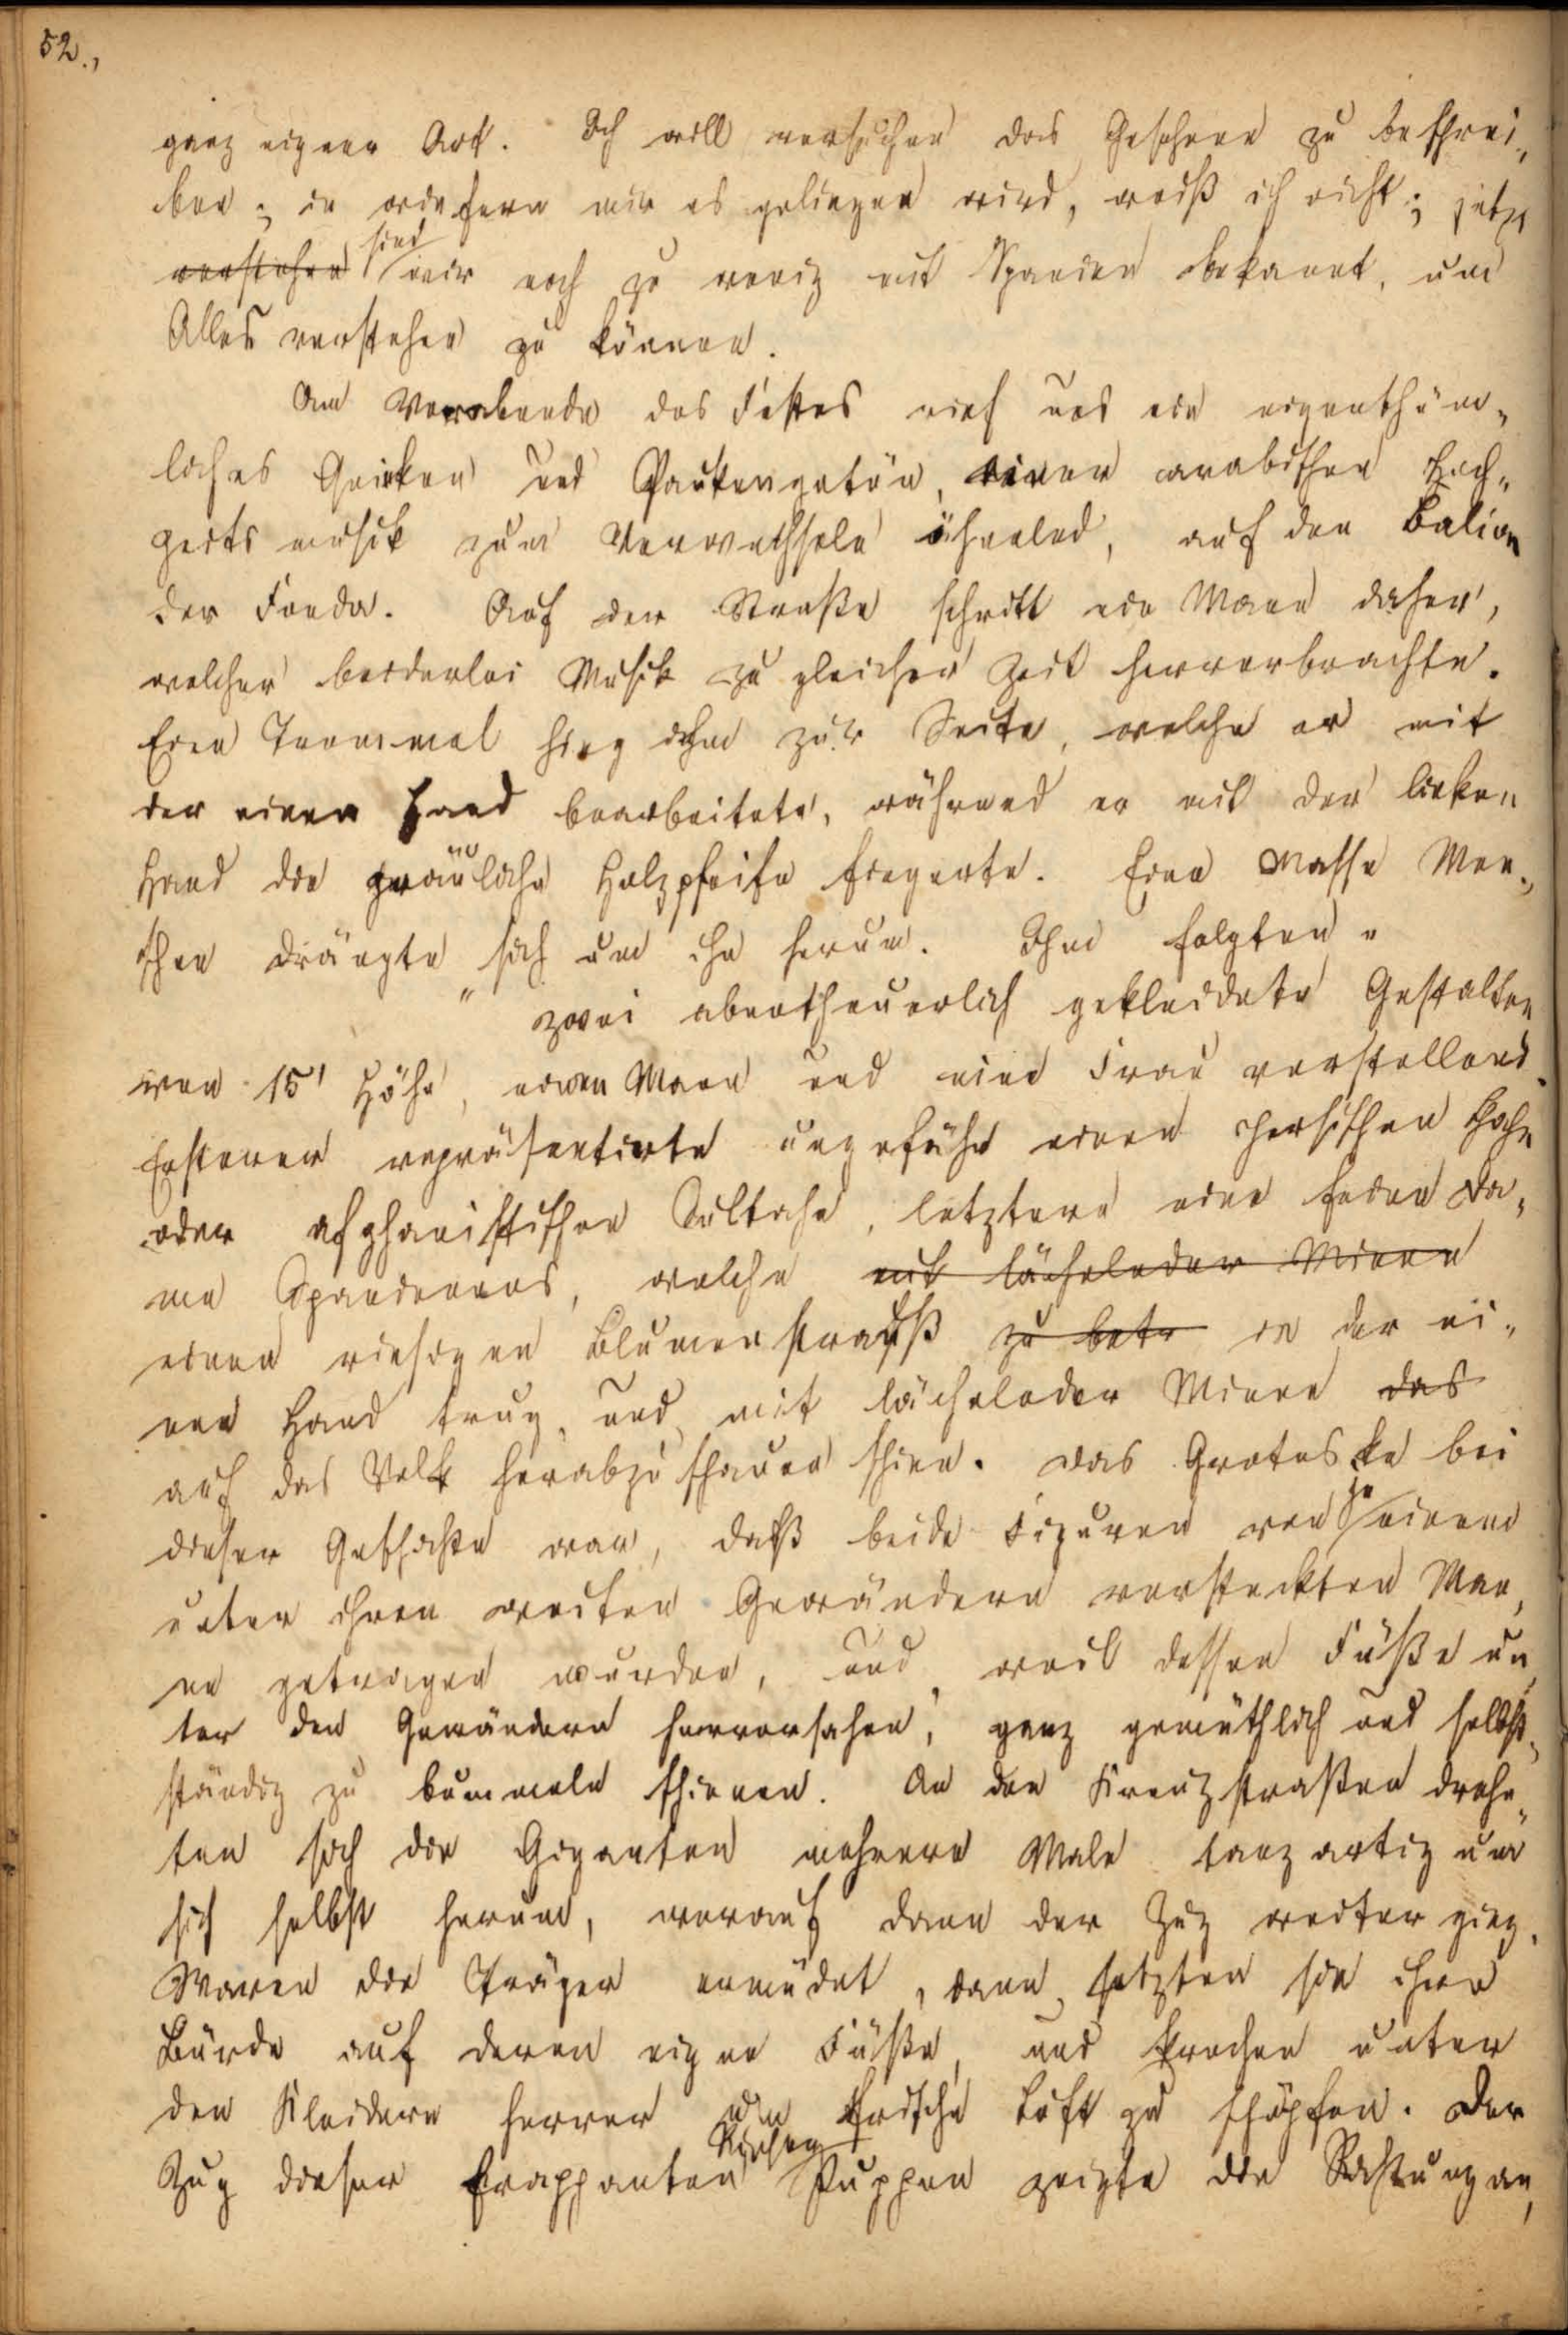 52.,
ganz eigener Art. Ich will versuchen das Gesehene zu beschrei„
ben; in wiefern mir es gelingen wird, weiß ich nicht; jetzt
verstehen sind wir noch zu wenig mit Spanien bekannt, um
Alles verstehen zu können.
Am Vorabende des Festes rief uns ein eigenthüm„
liches Quieken und Paukengetön, einer arabischen Hoch„
zeitsmusik zum Verwechseln ähnelnd, auf den Balcon
der Fonda. Auf der Straße schritt ein Mann daher,
welcher beiderlei Musik zu gleicher Zeit hervorbrachte.
Eine Trommel hing ihm zur Seite, welche er mit
der einen Hand bearbeitete, während er mit der linken
Hand die gräuliche Holzpfeife fingerte. Eine Masse Men„
schen drängte sich um ihn herum. Ihm folgten „
„ zwei abentheuerlich gekleidete Gestalten
von 15' Höhe, einen Mann und eine Frau vorstellend.
Ersterer repräsentirte ungefähr einen persischen Schah
oder afghanistischen Sultahn, letztere eine feine Da„
me Spandaniens, welche mit lächelnder Miene
einen riesigen Blumenstrauß zu betr in der ei„
nen Hand trug, und mit lächelnder Miene das
auf das Volk herabzuschauen schien. Das Groteske bei
dieser Geschichte war, daß beide Figuren von je einem
unter ihren weiten Gewändern versteckten Man„
ne getragen wurden, und, weil dessen Füße un„
ter den Gewändern hervorsahen, ganz gemüthlich und selbst„
ständig zu bummeln schienen. An den Kreuzstraßen dreh„
ten sich die Giganten mehrere Male tanzartig um
sich selbst herum, worauf dann der Zug weiter ging.
Waren die Träger ermüdet, dann setzten sie ihre
Bürde auf deren eigne Füße, und krochen unter
den Kleidern hervor um frische Luft zu schöpfen. Der
Zug dieser frappanten Riesen Puppen zeigte die Richtung an,